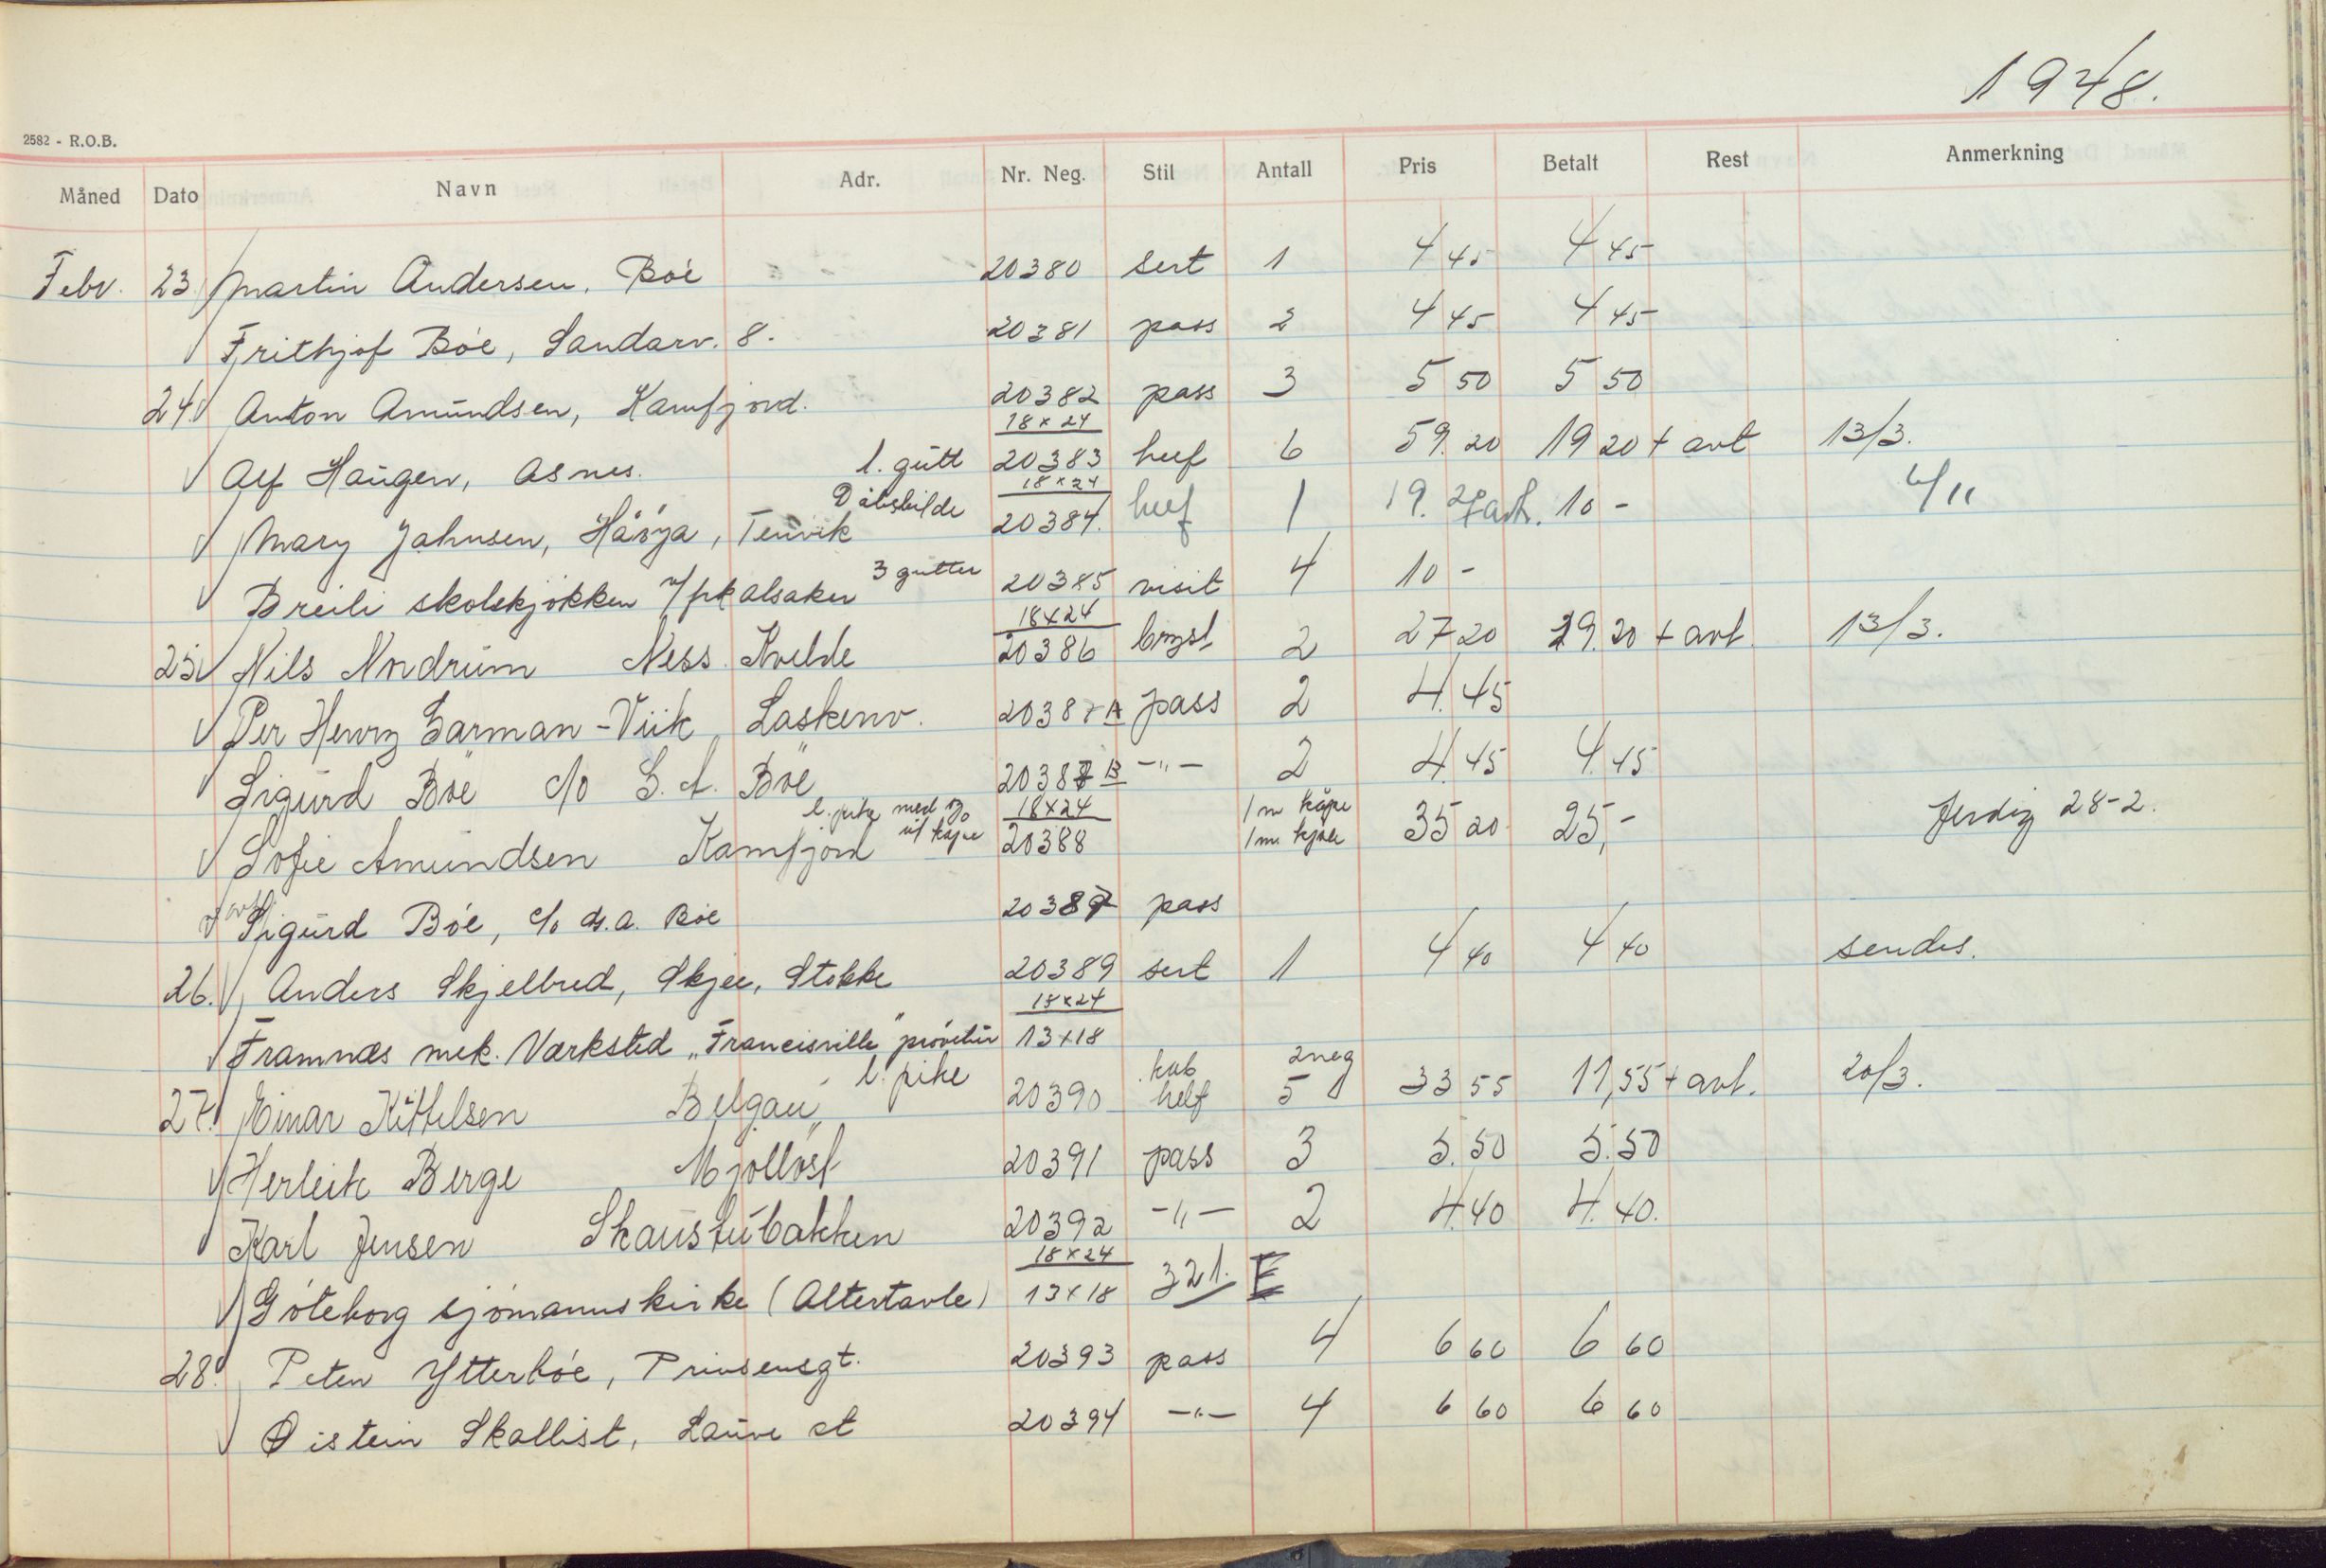 1948.
2582 - R.O.B.
Måned Dato Navn Adr. Nr. Neg. Stil Antall Pris Betalt Rest Anmerkning
Febr. 23 Martin Andersen, Bøe 20380 sert 1 4 45 4 45
Frithjof Bøe, Sandarv. 8. 20381 pass 2 4 45 4 45
24. Anton Amundsen, Kamfjord. 20382 pass 3 5 50 5 50
Alf Haugen, Asnes. l. gutt 18x24 20383 heef 6 59. 20 19 20 + avt 13/3.
Mary Jahnsen, Håøya, Tenvik Dåbsbilde 18x24 20384. heef 1 19. 10 - 4/11
Breili skolekjøkken v/frk Alsaker 3 gutter 20385 visit 4 10 -
25. Nils Nordrum Ness Kvelde 18x24 20386 bryst 2 27 20 29. 20 + avt. 13/3.
Per Henry Garman-Viik Laskenv. 20387A pass 2 4. 45
Sigurd Böe c/o S. A. Böe 20387 B -"- 2 4. 45 4. 45
Sofie Amundsen Kamfjord l. pike med og ut kåpe 18x24 20388 1 m kåpe 1 m. kjole 35 20 25,- ferdig 28-2.
Sigurd Bøe, c/o S.A. Bøe 20387 pass
26. Anders Skjelbred, Skjee, Stokke 20389 sert 1 4 40 4 40 sendes.
Framnæs mek. Værksted „Francisville" prøvetur 18x24 13x18
27. Einar Kittelsen Belgau, l. pike 20390 kab helf 2 neg 5 33 55 11,55 + avt. 20/3.
Herleik Berge Mjølløst 20391 pass 3 5. 50 5. 50
Karl Jensen Skaustubakken 20392 -"- 2 4. 40 4. 40.
Göteborg sjømannskirke (Altertavle) 18x24 13x18 321. E
28. Peter Ytterbøe, Prinsensgt. 20393 pass 4 6 60 6 60
Øistein Skallist, Lauve st 20394 -"- 4 6 60 6 60